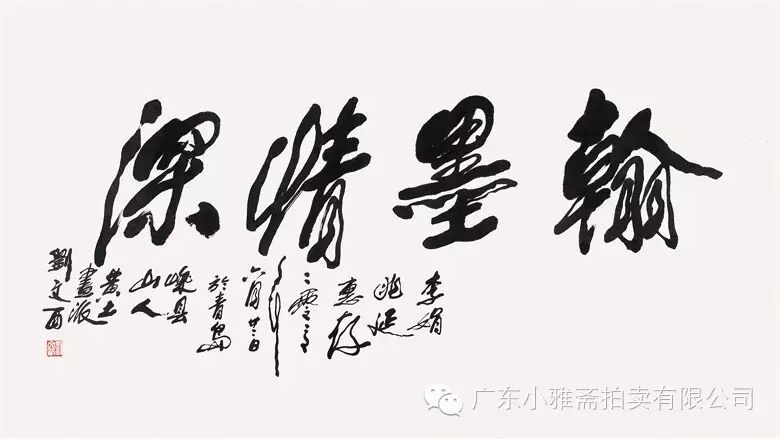 翰墨情深
李娟
延
惠存
二零
年
六月廿日
於青島
嵊县
山人
黄土
畫派
劉文西
广东小雅斋拍卖有限公司